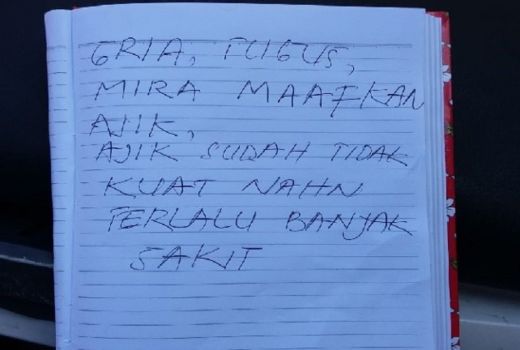 GRIA, TUGUS,
MIRA MAAFKAN
AJIK,
AJIK SUDAH TIDAK
KUAT NAHN
TERLALU BANJAK
SAKIT